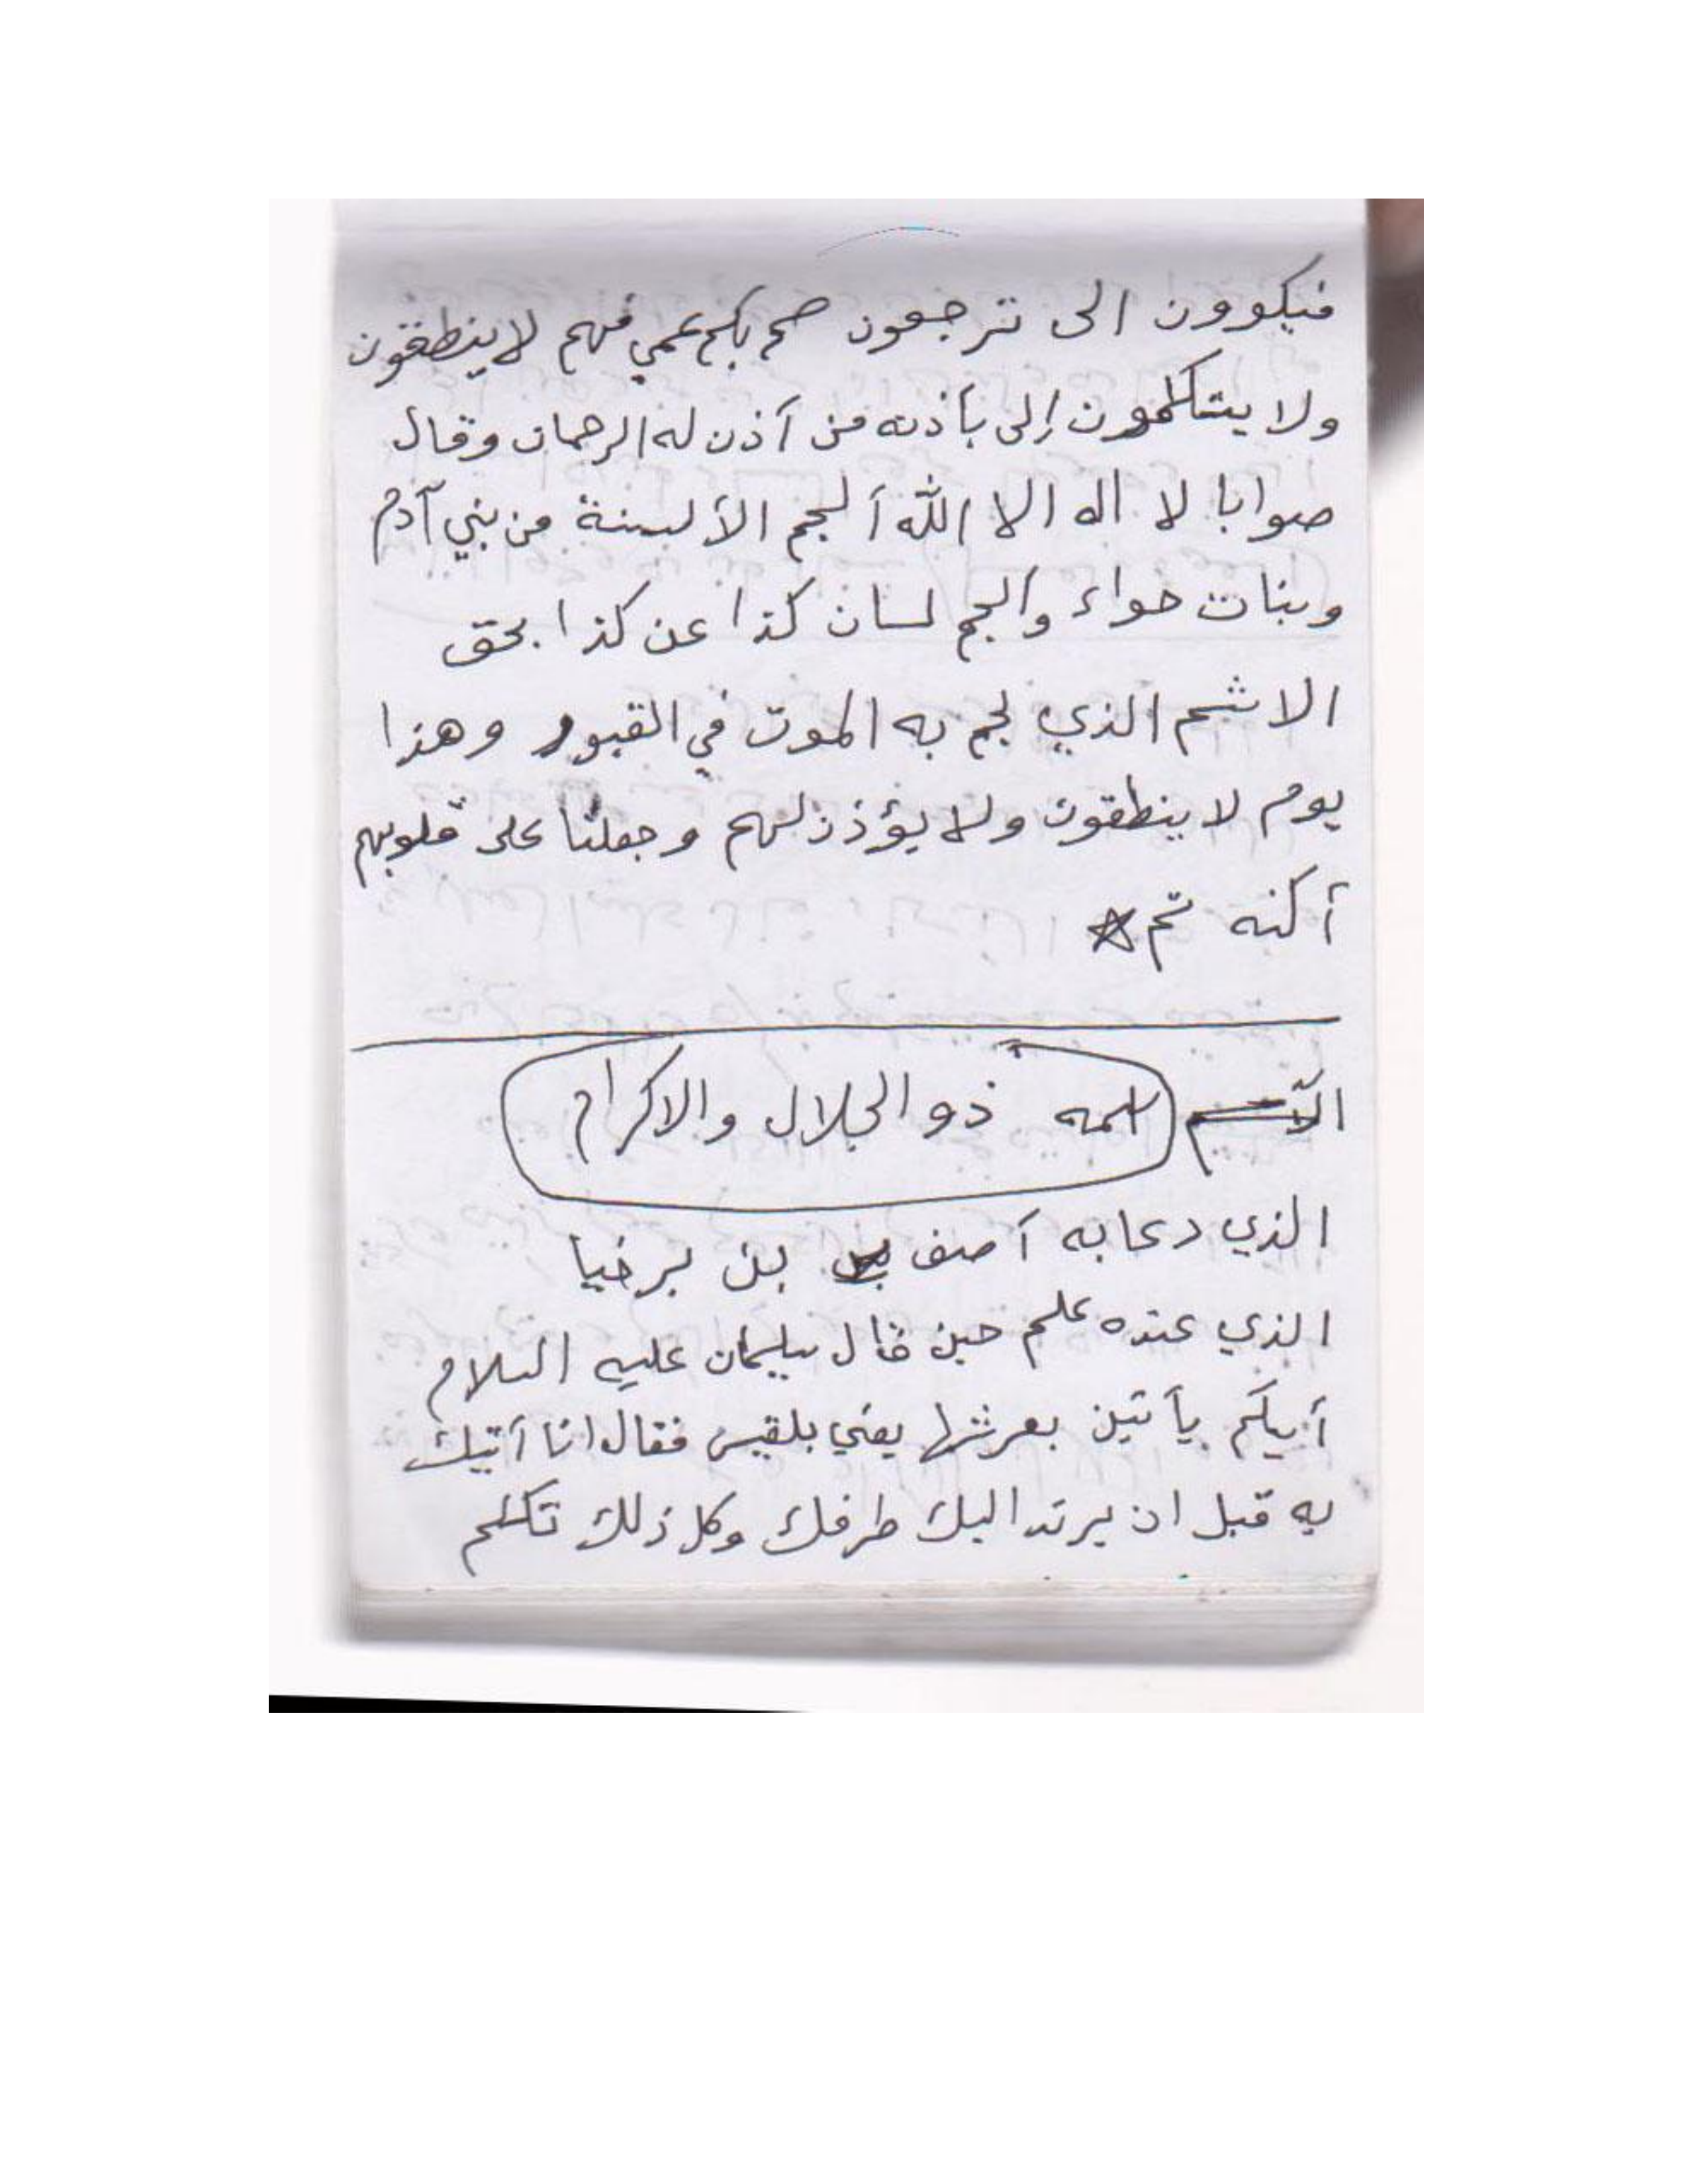 فيكوون الى ترجعون صم بكم عمي فهم لا ينطقون
ولا يتكلمون إلى بأذنه من آذن له الرحمان وقال
صوابا لا اله الا الله ألجم الألسنة من بني آدم
وبنات حواء والجم لسان كذا عن كذا بحق
الاشم الذي لجم به الموت في القبور وهذا
يوم لا ينطقون ولا يؤذن لهم وجعلنا على قلوبهم
أكنه تم
اسمه ذو الجلال والاكرام
الذي دعا به آصف بن برخيا
الذي عنده علم حين قال سليمان عليه السلام
أيكم يأتين بعرشها يعني بلقيس فقال انا آتيك
به قبل ان يرتد اليك طرفك وكل ذلك تكلم